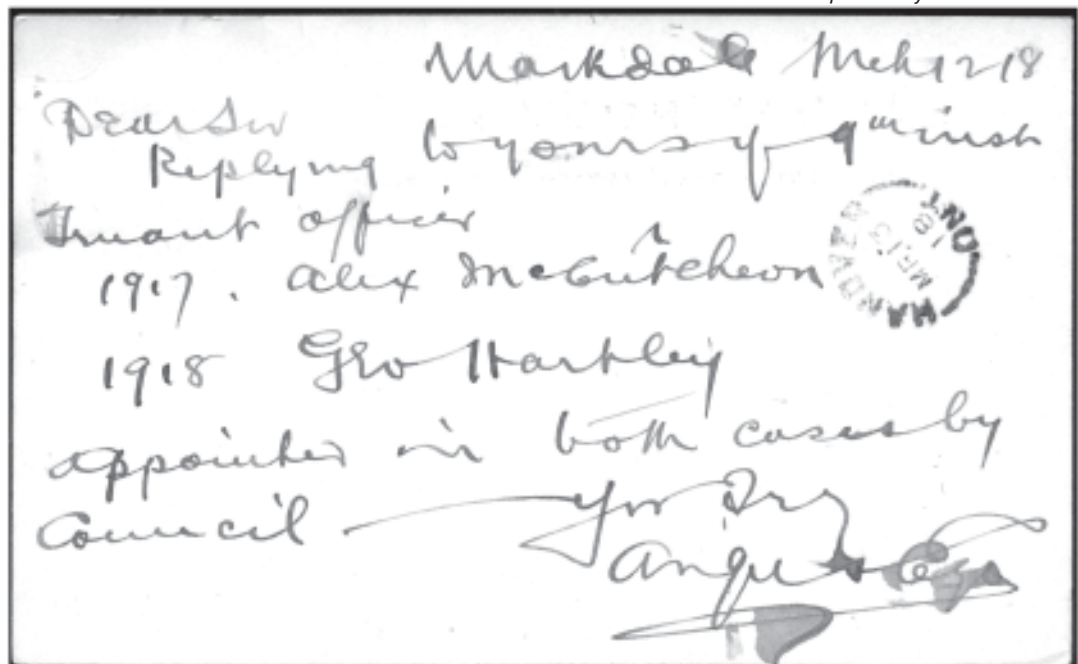 Markdale Mch 12 18
Dear Sir
Replying to yours of 9th inst
Truant officer
1917. Alex McCutcheon
1918 Geo Hartley
appointed in both cases by
Council — Yrs Try
Angus
HANOVER ONT
MR 13
18